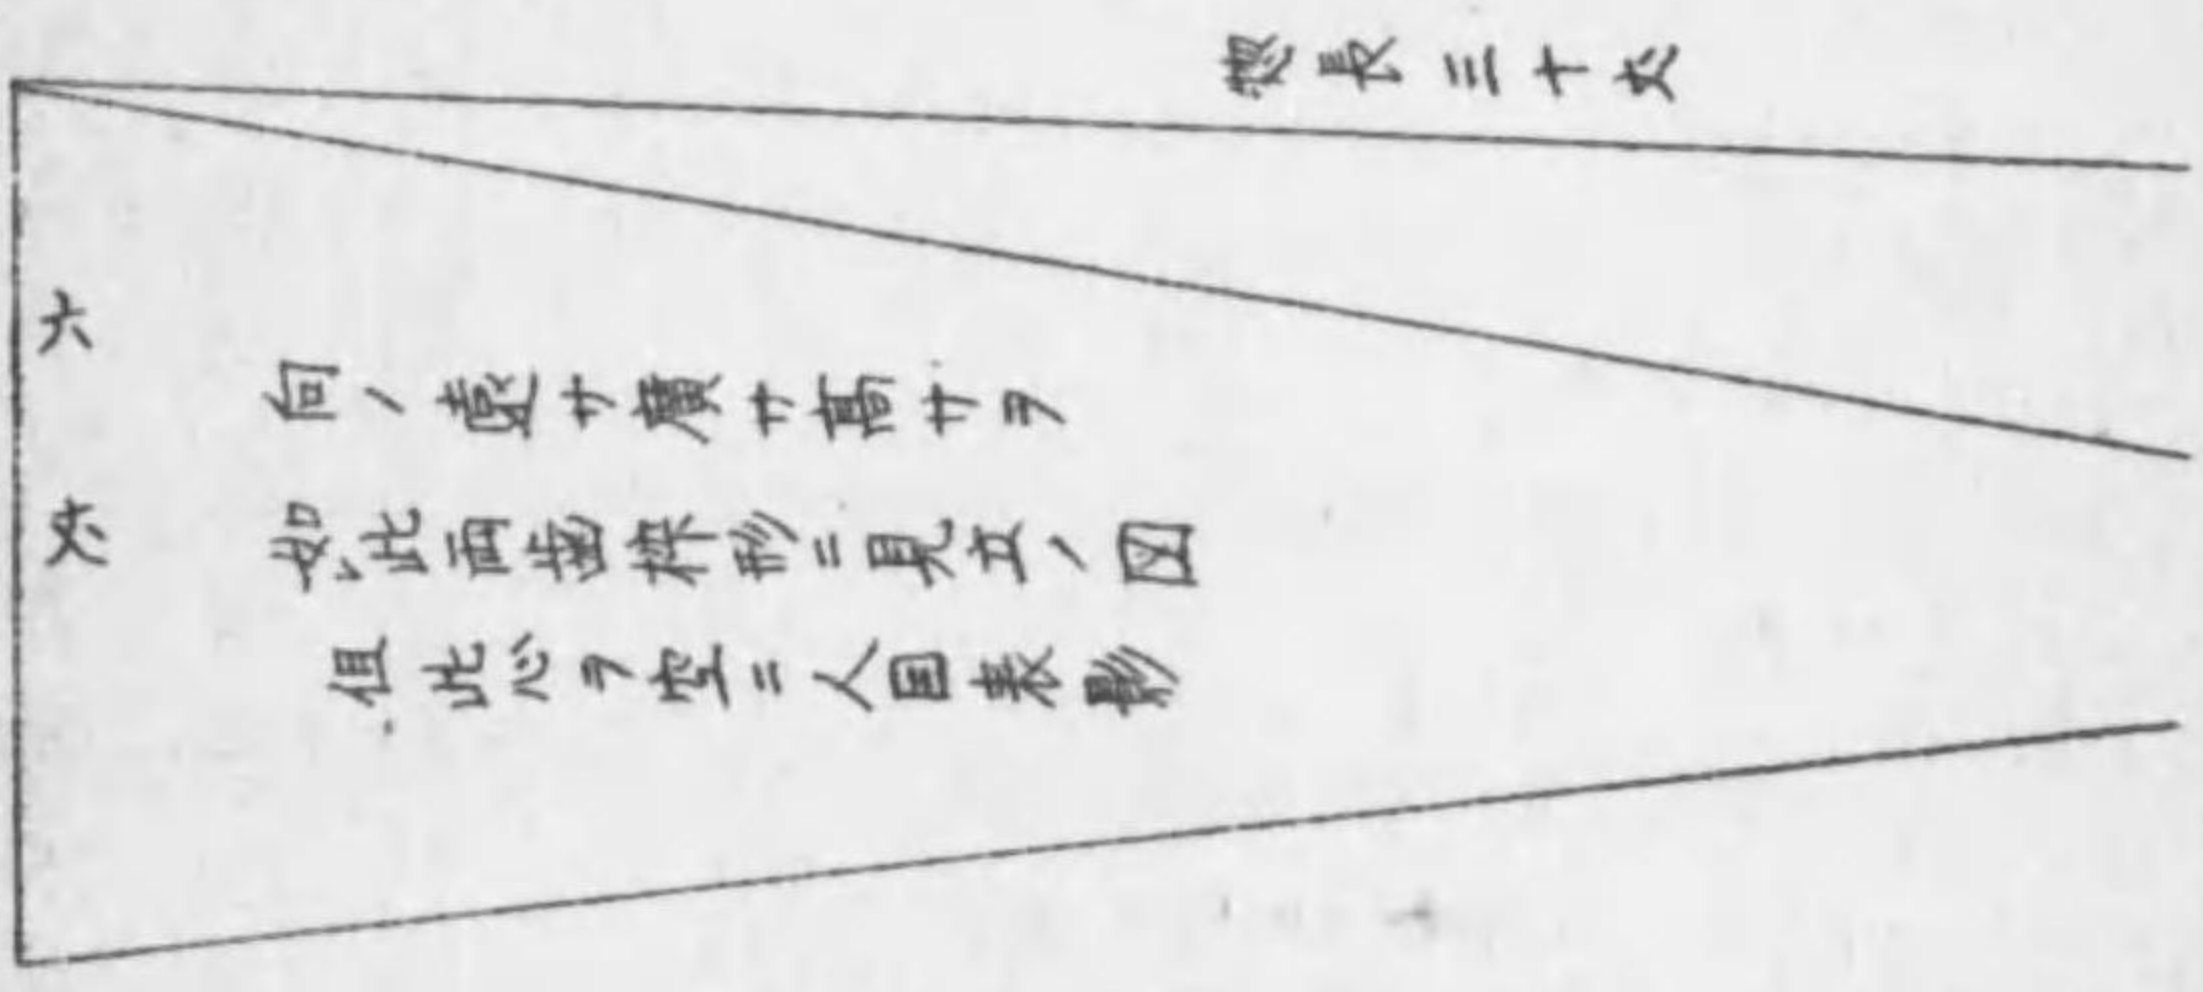 惣長三十丈
六丈
向ノ遠サ廣サ高サヲ
如此両歯枠形ニ見立ノ図
但此心ヲ空ニ人目表影